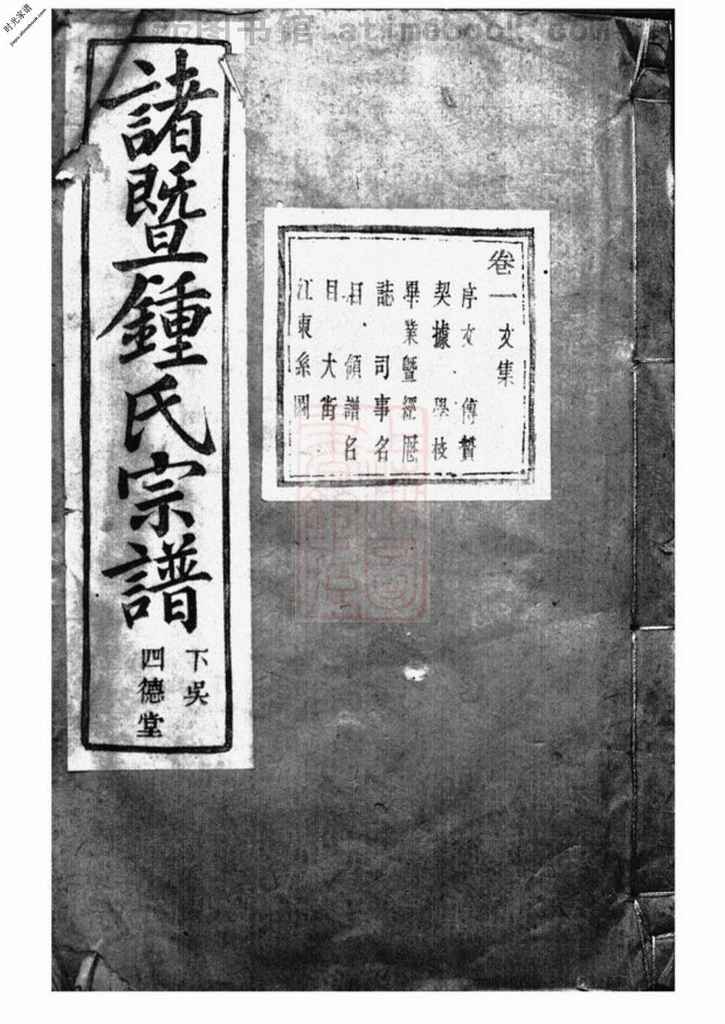 時光图书馆 atimebook.com
时光家谱
諸暨鍾氏宗譜
下吳
四德堂
卷一 文集
序文 傳贊
契據 學校
畢業暨經歷
誌 司事名
目 領譜名
目 大街
江東系圖